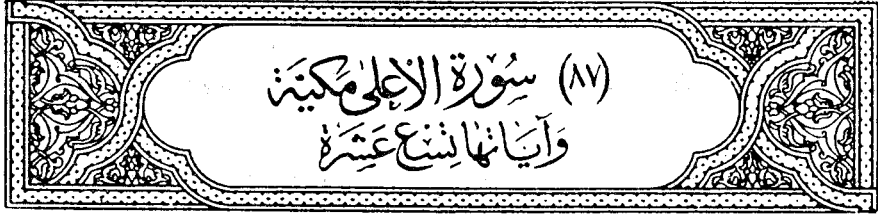 (٨٧) سُورَة الأَعْلىٰ مَكيَّة
وَآيَاتهَا تِسْع عَشرَة